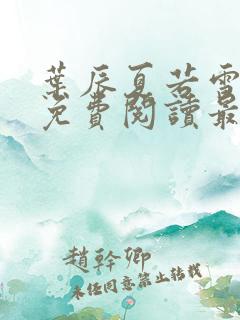 葉辰夏若雪
免費閱讀最
趙幹卿
未經同意禁止轉載